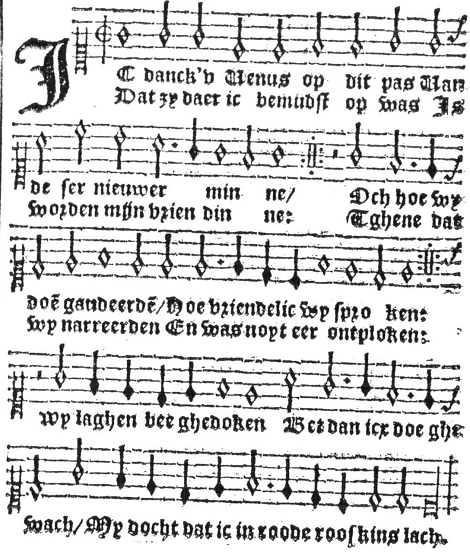 IC danck'v Uenus op dit pas Uan
Dat zy daer ic bemindst op was Is
de ser nieuwer min ne/ Och hoe wy
worden mijn vrien din ne: Tghene dat
doē gaudeerdē/ Hoe vriendelic wy spro ken:
wy narreerden En was noyt eer ontploken:
wy laghen bee ghedoken Bet dan icx doe ghe
wach/ My docht dat ic in roode rooskins lach.